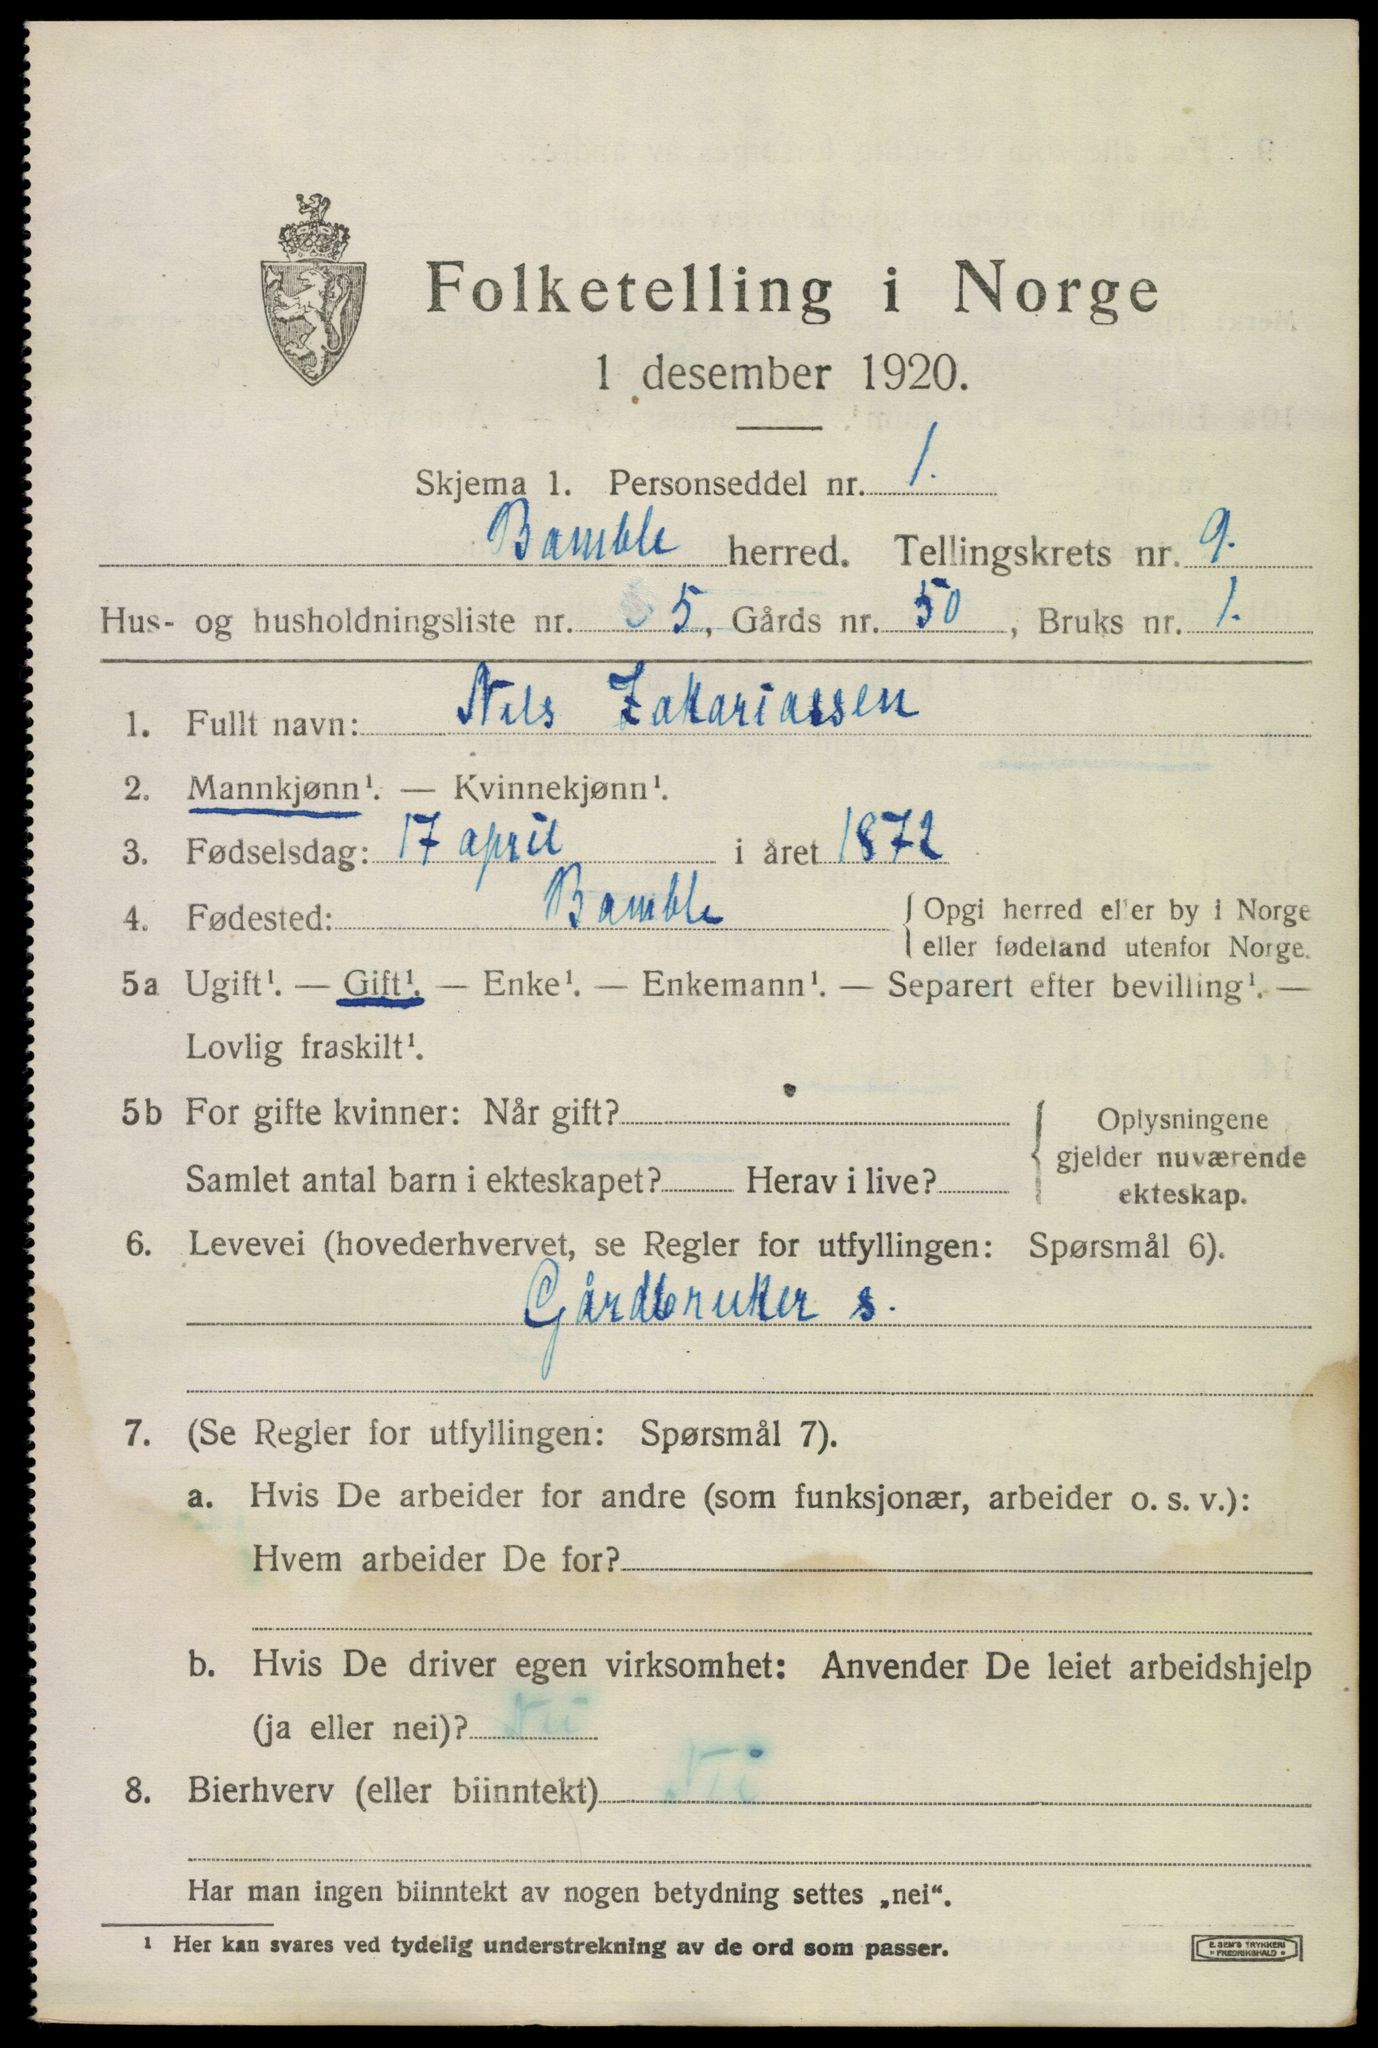 Folketelling i Norge
1 desember 1920.
Skjema 1. Personseddel nr. 1.
Bamble herred. Tellingskrets nr. 9.
Hus- og husholdningsliste nr. 5, Gårds nr. 50, Bruks nr. 1.
1. Fullt navn: Nils Zakariassen
2. Mannkjønn¹. — Kvinnekjønn¹.
3. Fødselsdag: 17 april i året 1872
4. Fødested: Bamble { Opgi herred eller by i Norge
eller fødeland utenfor Norge.
5a Ugift¹. — Gift¹. — Enke¹. — Enkemann¹. — Separert efter bevilling¹. —
Lovlig fraskilt¹.
5b For gifte kvinner: Når gift?
Samlet antal barn i ekteskapet? Herav i live?
Oplysningene
gjelder nuværende
ekteskap.
6. Levevei (hovederhvervet, se Regler for utfyllingen: Spørsmål 6).
Gårdbruker s.
7. (Se Regler for utfyllingen: Spørsmål 7).
a. Hvis De arbeider for andre (som funksjonær, arbeider o. s. v.):
Hvem arbeider De for?
b. Hvis De driver egen virksomhet: Anvender De leiet arbeidshjelp
(ja eller nei)? Nei
8. Bierhverv (eller biinntekt) Nei
Har man ingen biinntekt av nogen betydning settes „nei“.
¹ Her kan svares ved tydelig understrekning av de ord som passer.
E. SEM'S TRYKKERI
* FREDRIKSHALD *